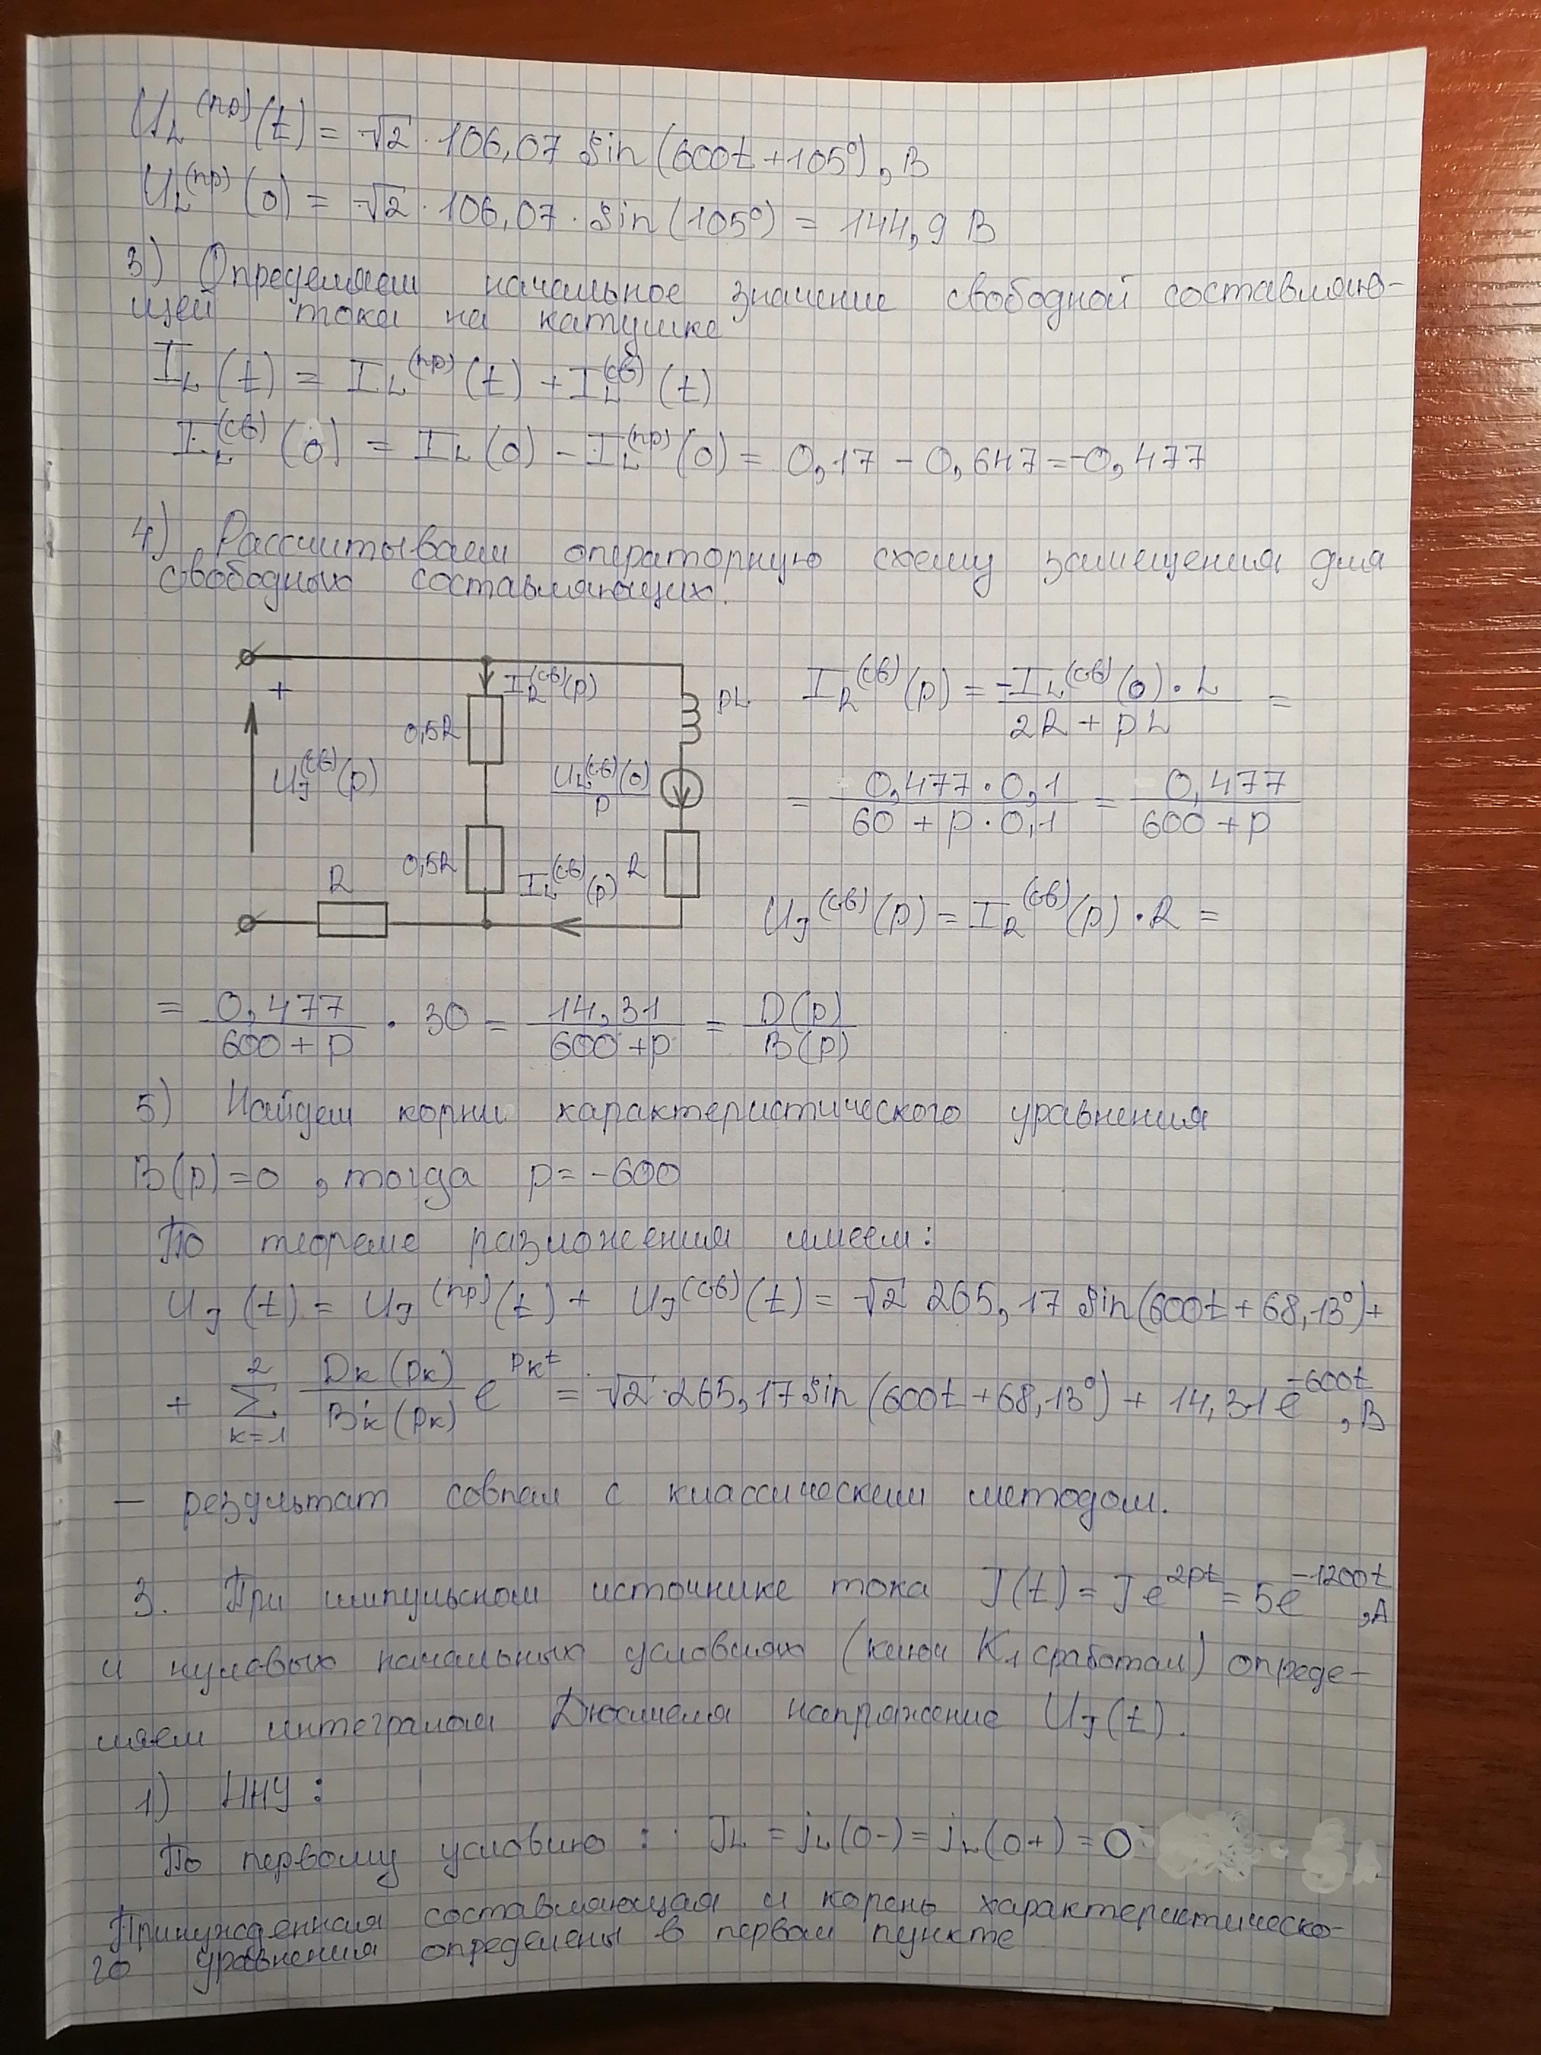 U_L^(пр)(t) = √2 · 106,07 sin(600t+105°), В
U_L^(пр)(0) = √2 · 106,07 · sin(105°) = 144,9 В
3) Определяем начальное значение свободной составляю-
щей тока на катушке
I_L(t) = I_L^(пр)(t) + I_L^(св)(t)
I_L^(св)(0) = I_L(0) − I_L^(пр)(0) = 0,17 − 0,647 = −0,477
4) Рассчитываем операторную схему замещения для
свободных составляющих.
+
U_J^(св)(p)
R
0,5R
0,5R
I_R^(св)(p)
pL
U_L^(св)(0)/p
I_L^(св)(p)
R
I_R^(св)(p) = −I_L^(св)(0)·L / (2R + pL) =
= 0,477·0,1 / (60 + p·0,1) = 0,477 / (600+p)
U_J^(св)(p) = I_R^(св)(p)·R =
= 0,477 / (600+p) · 30 = 14,31 / (600+p) = D(p) / B(p)
5) Найдем корни характеристического уравнения
B(p)=0, тогда p = −600
По теореме разложения имеем:
U_J(t) = U_J^(пр)(t) + U_J^(св)(t) = √2 265,17 sin(600t + 68,13°) +
+ ∑_{k=1}^{2} D_k(p_k) / B'_k(p_k) e^{p_k t} = √2·265,17 sin(600t+68,13°) + 14,31 e^{−600t}, В
— результат совпал с классическим методом.
3. При импульсном источнике тока J(t) = J e^{2pt} = 5e^{−1200t}, А
и нулевых начальных условиях (ключ K₁ сработал) опреде-
ляем интегралом Дюамеля напряжение U_J(t).
1) ННУ:
По первому условию: J_L = j_L(0−) = j_L(0+) = 0
Принужденная составляющая и корень характеристическо-
го уравнения определены в первом пункте